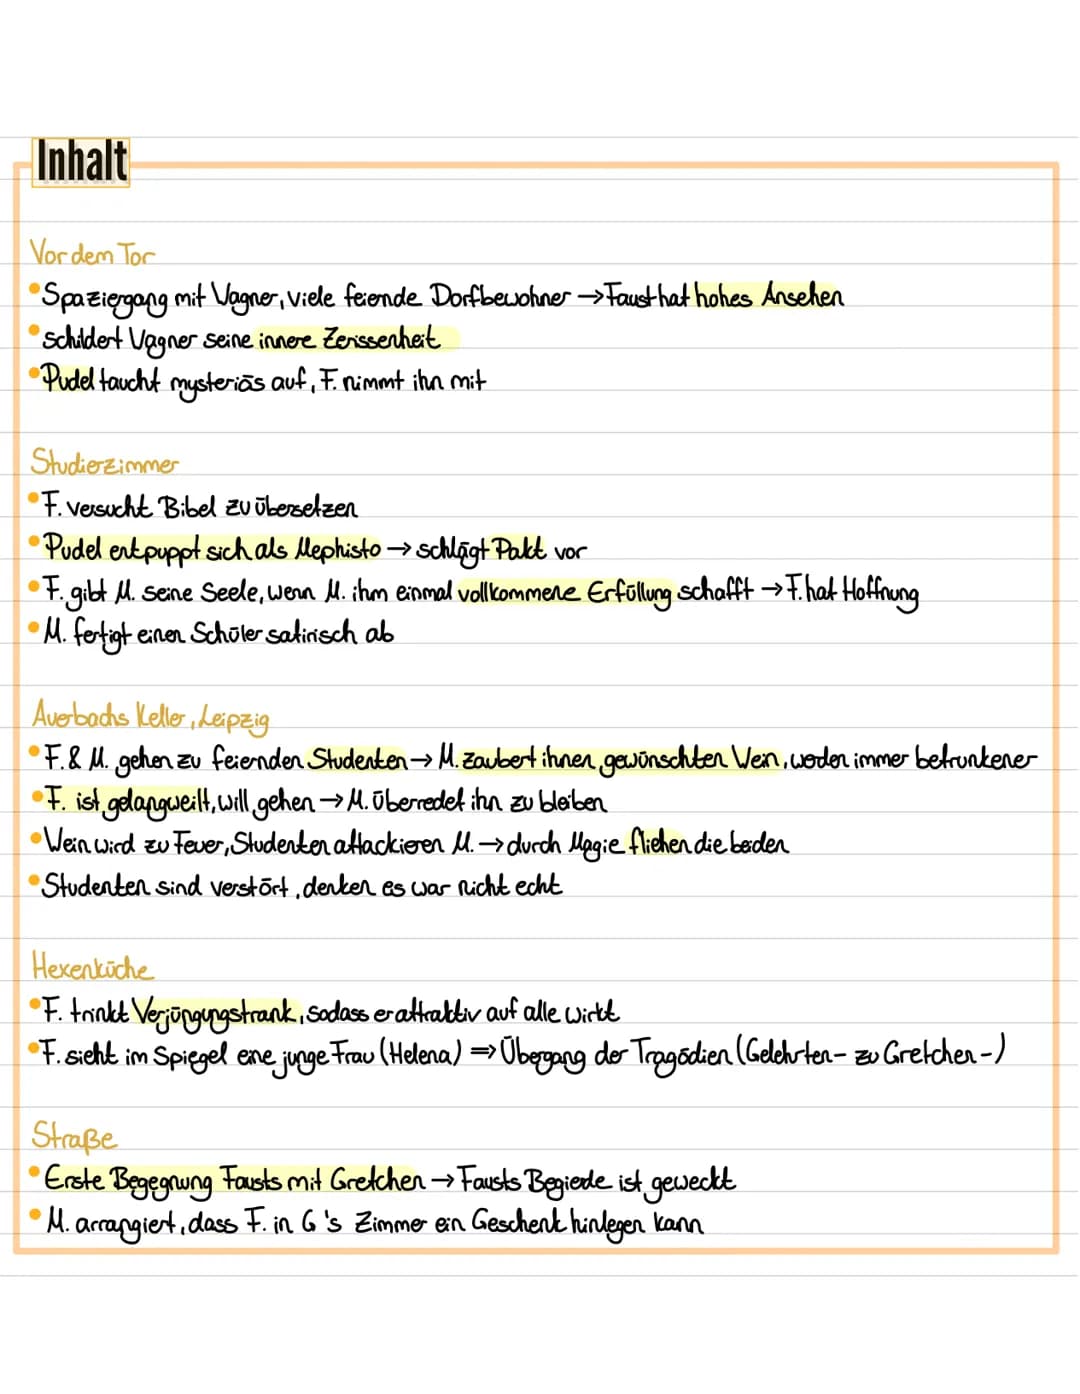 Inhalt
Vor dem Tor
• Spaziergang mit Wagner, viele feiende Dorfbewohner → Faust hat hohes Ansehen
• schildert Wagner seine innere Zerissenheit
• Pudel taucht mysteriös auf, F. nimmt ihn mit
Studierzimmer
• F. versucht Bibel zu übersetzen
• Pudel entpuppt sich als Mephisto → schlägt Pakt vor
• F. gibt M. seine Seele, wenn M. ihm einmal vollkommene Erfüllung schafft → F. hat Hoffnung
• M. fertigt einen Schüler satirisch ab
Auerbachs Keller, Leipzig
• F. & M. gehen zu feiernden Studenten → M. zaubert ihnen gewünschten Wein, werden immer betrunkener
• F. ist gelangweilt, will gehen → M. überredet ihn zu bleiben
• Wein wird zu Feuer, Studenten attackieren M. → durch Magie fliehen die beiden
• Studenten sind verstört, denken es war nicht echt
Hexenküche
• F. trinkt Verjüngungstrank, sodass er attraktiv auf alle wirkt
• F. sieht im Spiegel eine junge Frau (Helena) ⇒ Übergang der Tragödien (Gelehrten- zu Gretchen-)
Straße
• Erste Begegnung Fausts mit Gretchen → Fausts Begierde ist geweckt
• M. arrangiert, dass F. in G's Zimmer ein Geschenk hinlegen kann